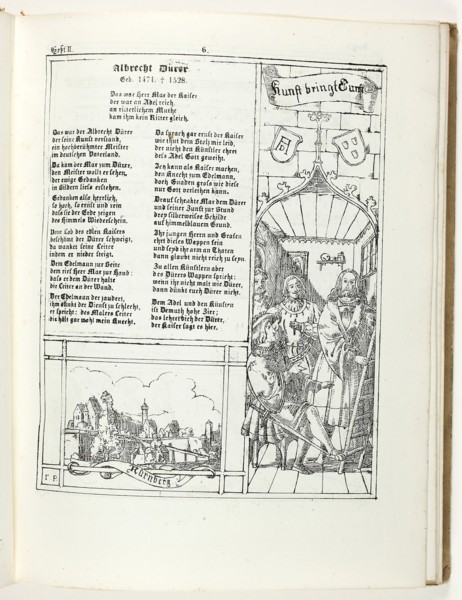 Heft II.
6.
Albrecht Dürer
Geb. 1471. † 1528.
Das war Herr Max der Kaiser
der war an Adel reich,
an ritterlichem Muthe
kam ihm kein Ritter gleich.
Das war der Albrecht Dürer
der seine Kunst verstand,
ein hochberühmter Meister
im deutschen Vaterland.
Da kam der Max zum Dürer,
den Meister wollt er sehen,
der ewige Gedanken
in Bildern liess erstehen.
Gedanken also herrlich,
so hoch, so ernst und rein
dass sie der Erde zeigen
des Himmels Wiederschein.
Vom Lob des edlen Kaisers
beschämt der Dürer schweigt,
da wanket seine Leiter
indem er nieder steigt.
Dem Edelmann zur Seite
dem rief Herr Max zur Hand:
dass er dem Dürer halte
die Leiter an der Wand.
Der Edelmann der zaudert,
ihm dünkt der Dienst zu schlecht,
er spricht: des Malers Leiter
die hält gar wohl mein Knecht.
Da sprach gar ernst der Kaiser
wie thut dein Stolz mir leid,
der nicht den Künstler ehret
dess Adel Gott geweiht.
Ich kann als Kaiser machen,
den Knecht zum Edelmann,
doch Gnaden gross wie diese
nur Gott verleihen kann.
Drauf schenkte Max dem Dürer
und seiner Zunft zur Stund
drey silberweisse Schilde
auf himmelblauem Grund.
Ihr jungen Herrn und Grafen
ehrt dieses Wappen fein
und seyd ihr arm an Thaten
dann glaubt nicht reich zu seyn.
Zu allen Künstlern aber
des Dürers Wappen spricht:
wenn ihr nicht malt wie Dürer,
dann dünkt euch Dürer nicht.
Dem Adel und den Künsten
ist Demuth hohe Zier;
das lehret dich der Dürer,
der Kaiser sagt es hier.
Kunst bringt Gunst
AD
Nürnberg
F P.